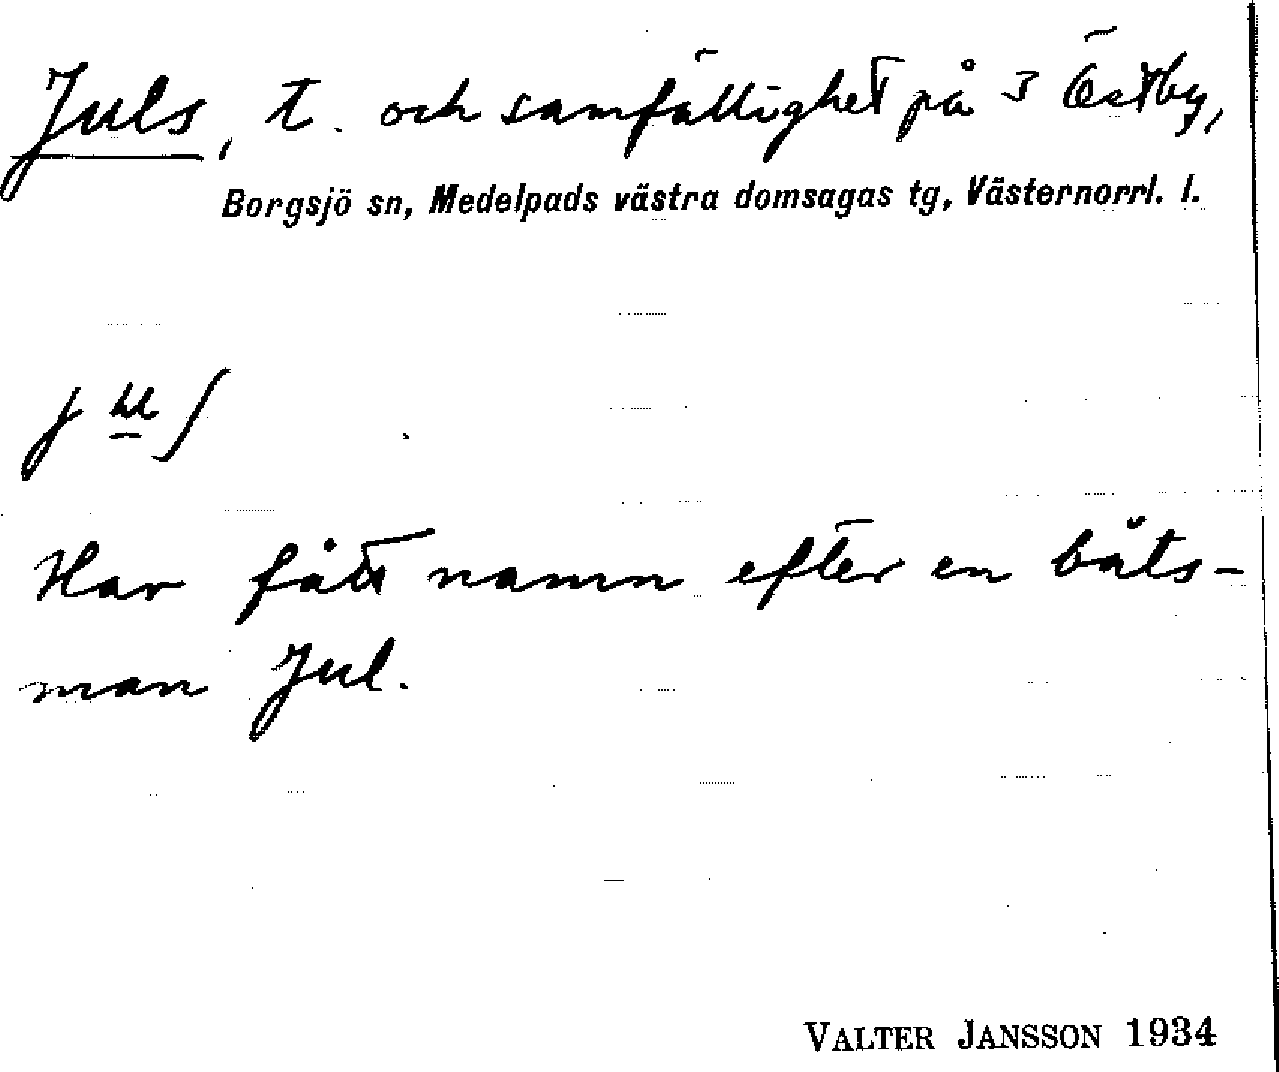 Juls, t. och samfällighet på 3 Östby,
Borgsjö sn, Medelpads västra domsagas tg, Västernorrl. l.
Har fått namn efter en båts-
man Jul.
VALTER JANSSON 1934